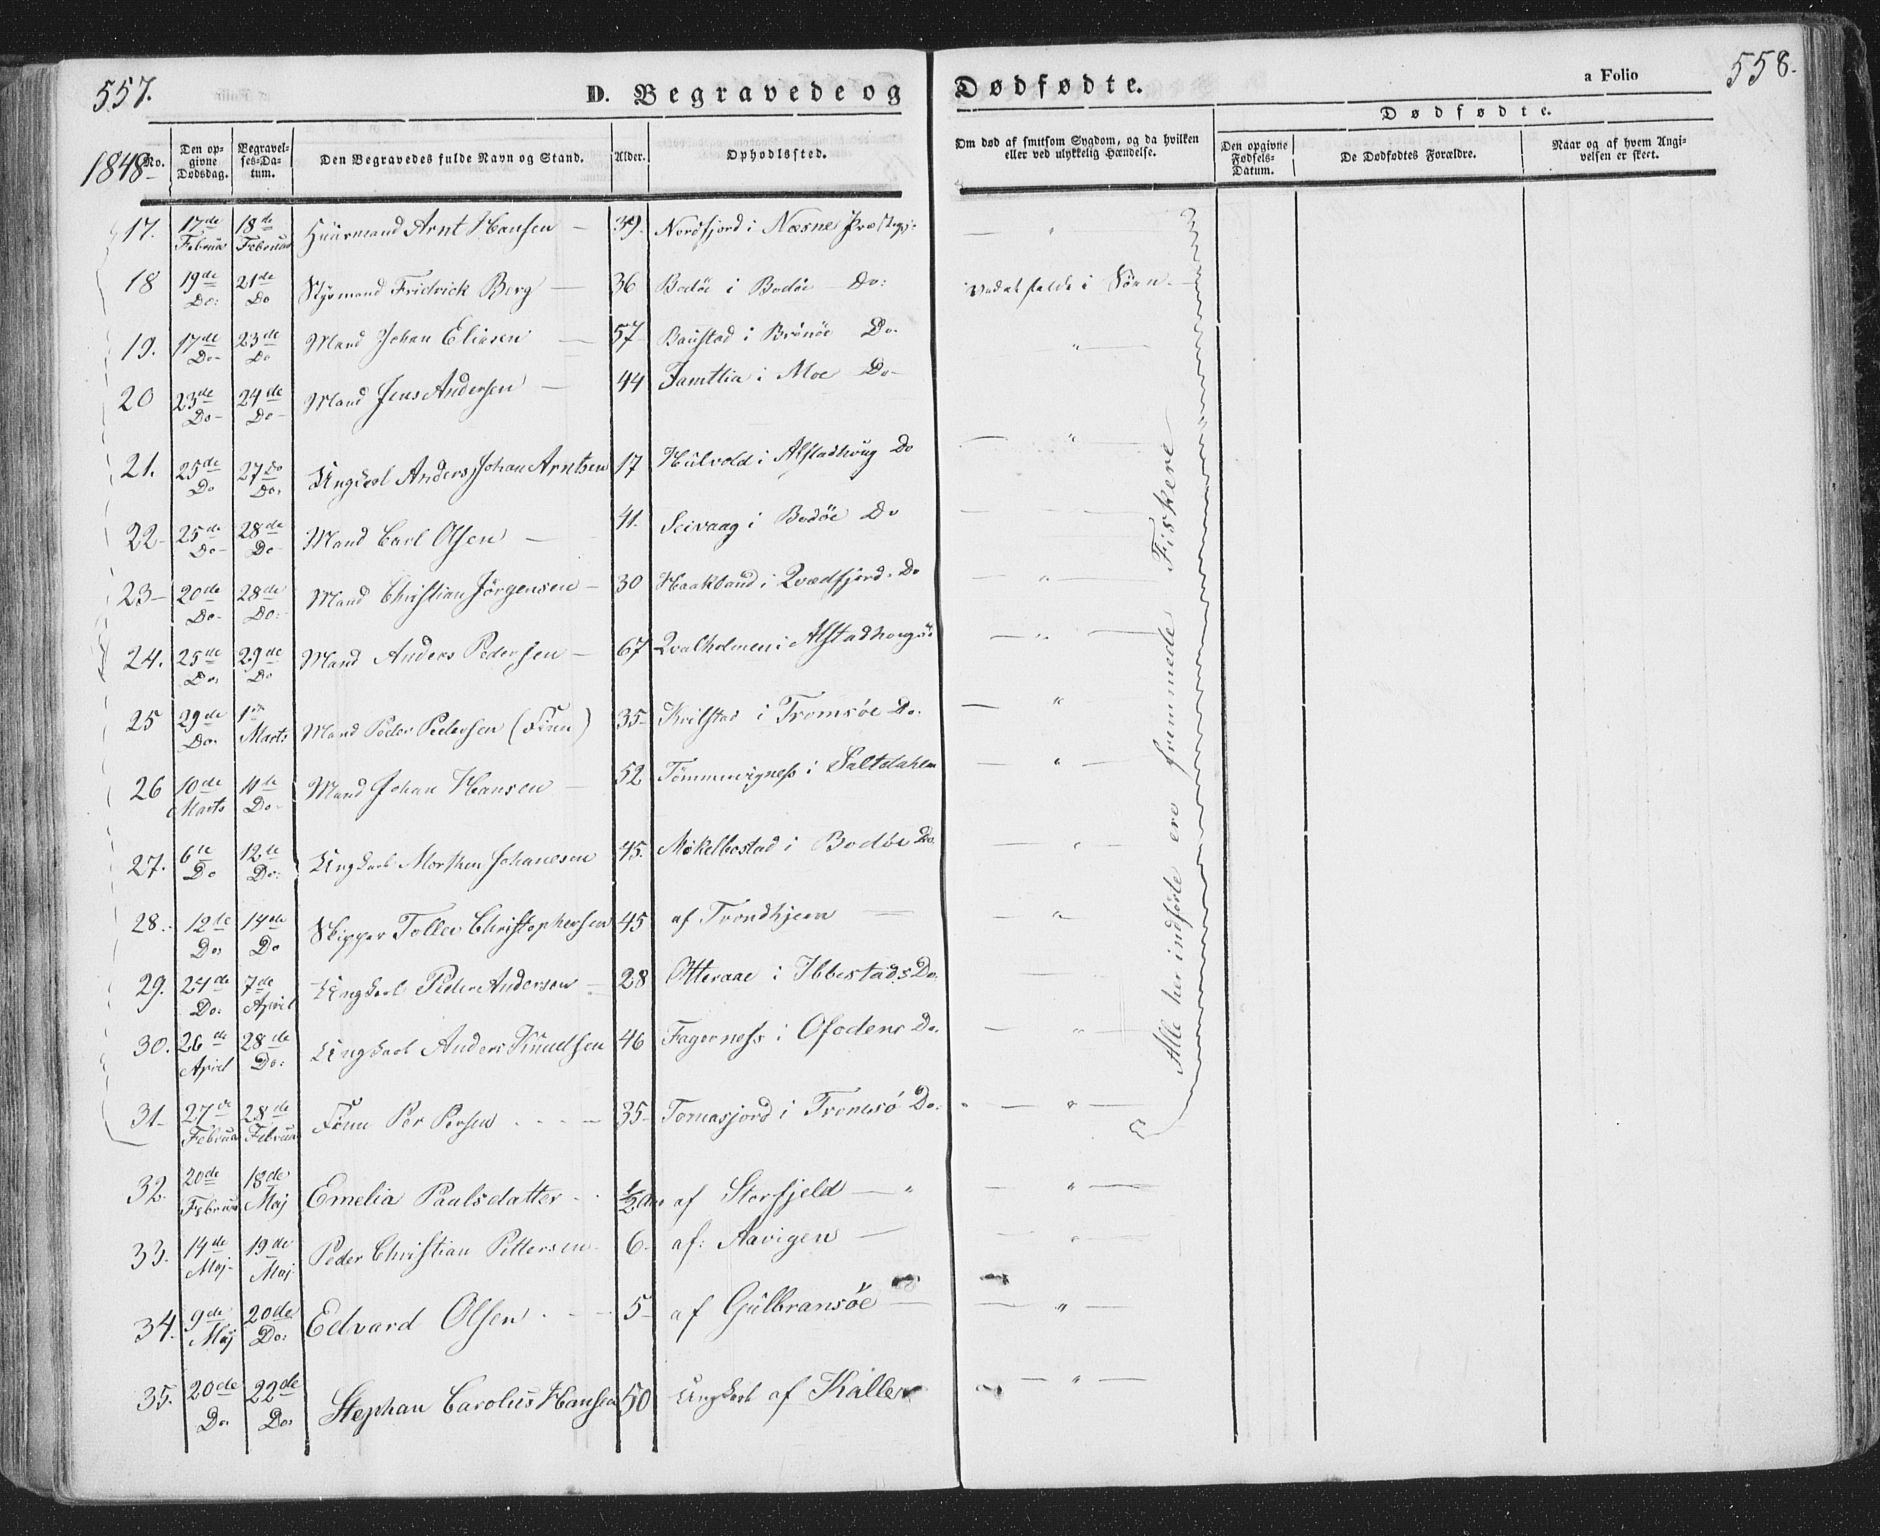 557.
D. Begravede og
Dødfødte.
a Folio
558.
1848
No.
Den opgivne Dødsdag.
Begravelses-Datum.
Den Begravedes fulde Navn og Stand.
Alder.
Opholdssted.
Om død af smitsom Sygdom, og da hvilken
eller ved ulykkelig Hændelse.
Dødfødte.
Den opgivne Fødsels-Datum.
De Dødfødtes Forældre.
Naar og af hvem Angivelsen er skeet.
17. 17de Februar 18de Februar Huusmand Arnt Hansen — 39. Nordfjord i Næsne Præstegj: — " —
18 19de Do: 21de Do Styrmand Fridrick Berg — 36 Bodøe i Bodøe — Do: i Søen —
19. 17de Do- 23de Do Mand Johan Eliasen — 57 i Brønøe Do. " —
20 23de Do- 24de Do- Mand Jens Andersen — 44 i Moe Do-
21. 25de Do 27 Do Do. Ungkarl Anders Johan Arntsen 17 Hulvold i Alstadhoug Do — " —
22- 25de Do- 28de Do- Mand Carl Olsen — 41. Seivaag i Bodøe Do — " —
23- 20de Do- 28de Do: Mand Christian Jörgensen — 30 i Qvædfjord. Do — " —
24. 25de Do. 29de Do Mand Anders Pedersen — 67 Qvalholmen i Alstadhoug — " —
25 29de Do. 1ste Marts Mand Peder Pedersen (Finn) 35- i Tromsøe Do. — " —
26 10de Marts 11te Do- Mand Johan Hansen — 52 i Saltdahlen — " —
27. 6te Do 12te Do: Ungkarl Morthen Johanesen 45. Mökelbostad i Bodøe Do. — " —
28. 12te Do. 14de Do Skipper Tollev Christophersen 45 af Trondhjem — — " —
29. 24de Do. 7de April Ungkarl Peder Andersen — 28 Otteraae i Ibbestads Do.
30. 26de April 28de Do: Ungkarl Anders Knudsen 46 Fagerness i Ofodens Do. — " —
31- 27de Februar 28de Februar Finn Per Persen . . . — 35- i Tromsø Do. — " —
32. 20de Februar 18de Maj Emelia Paulsdatter . . 1/2 Aar af Storfjeld — " — " —
33. 14de Maj- 19de Maj Peder Christian Pettersen 6. af: Aavigen — "
34. 9de Maj 20de Do: Edvard Olsen . . — 5- af Gulbransøe — — " —
35. 20de Do. 22de Do. Stephan Carolus Hansen 50 Ungkarl af Kalle — " —
Alle her indførte ere fremmede Fiskere